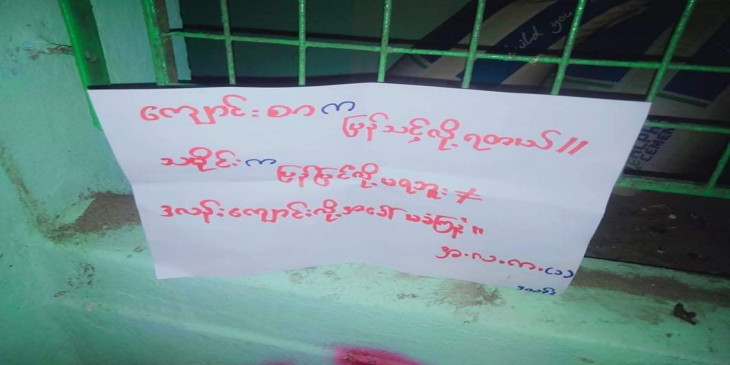 ild you
ကျောင်းစာက
ပြန်သင့်လို့ရတယ်။
သမိုင်းက
ပြန်ပြင်လို့မရဘူး≠
ဒလန်းကျောင်းလို့အခေါ်မခံကြနဲ့။
အ.လ.က.(၁)
CEMEN